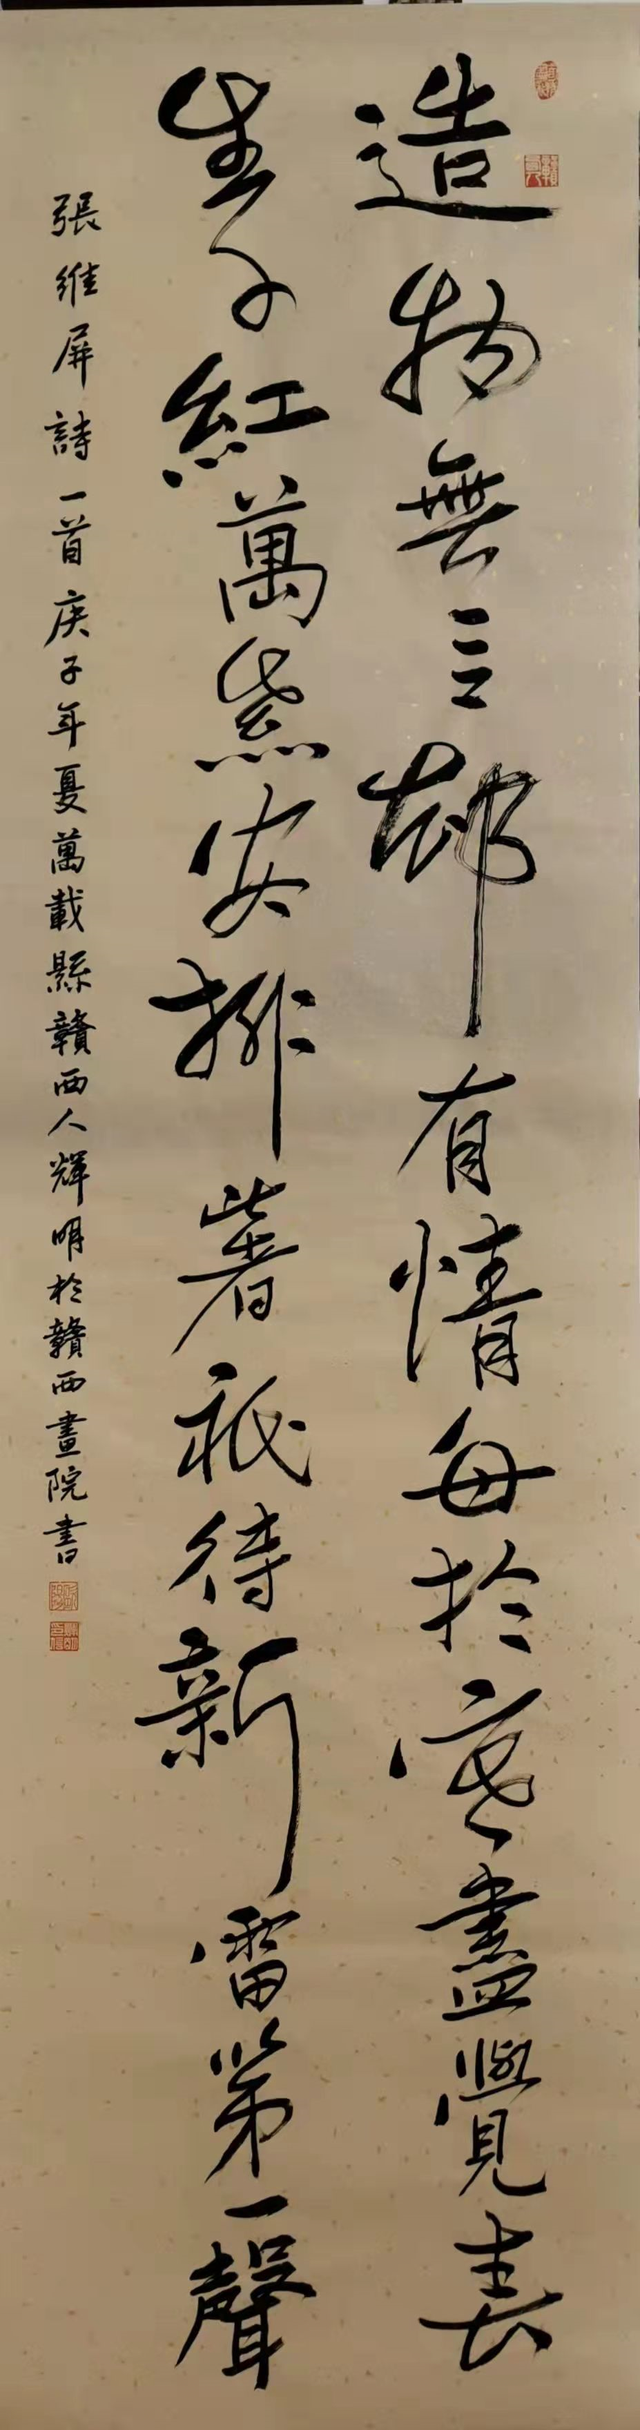 造物無言却有情每於寒盡覺春
生千紅萬紫安排著祇待新雷第一聲
張維屏詩一首庚子年夏萬載縣贛西人輝明於贛西畫院書